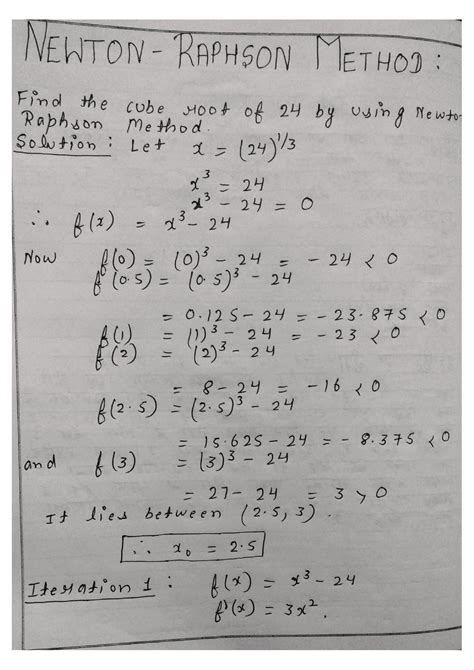 NEWTON-RAPHSON METHOD:
Find the cube root of 24 by using Newto
Raphson Method.
Solution: Let x = (24)^1/3
x³ = 24
x³ - 24 = 0
∴ f(x) = x³ - 24
Now f(0) = (0)³ - 24 = - 24 < 0
f(0.5) = (0.5)³ - 24
= 0.125 - 24 = - 23.875 < 0
f(1) = (1)³ - 24 = - 23 < 0
f(2) = (2)³ - 24
= 8 - 24 = -16 < 0
f(2.5) = (2.5)³ - 24
= 15.625 - 24 = - 8.375 < 0
and f(3) = (3)³ - 24
= 27 - 24 = 3 > 0
It lies between (2.5, 3).
∴ x₀ = 2.5
Iteration 1: f(x) = x³ - 24
f'(x) = 3x².